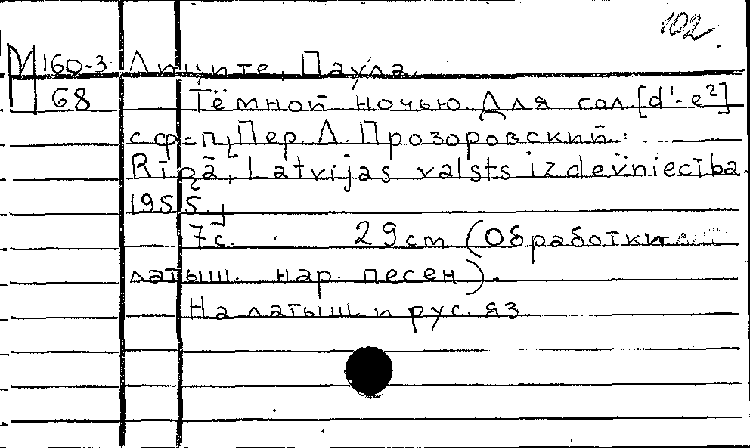 102.
М160-3 Лиците, Паула.
68 Тёмной ночью. Для сол. [d¹-e²]
с ф-п, Пер. Л. Прозоровский.
Rīgā, Latvijas valsts izdevniecība.
1955.,
7с. 29cm (Обработки
латыш. нар. песен).
На латыш. и рус. яз.